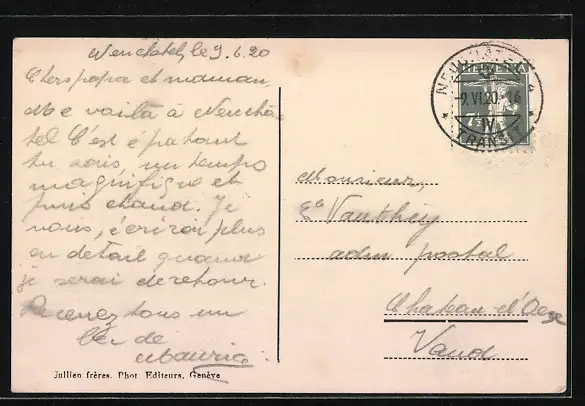 Neuchâtel, le 9.6.20
Chers papa et maman,
Me voilà à Neuchâ-
tel C'est épatant
tu sais, un temps
magnifique et
puis chaud. Je
vous écrirai plus
en détail quand
je serai de retour.
Recevez tous un
de
Maurice
Jullien frères. Phot. Editeurs, Genève
HELVETIA
7½
-9.VI.20.-16
IV
TRANSIT
Monsieur,
Es Vauthey
adm postal
Chateau d'Oex
Vaud